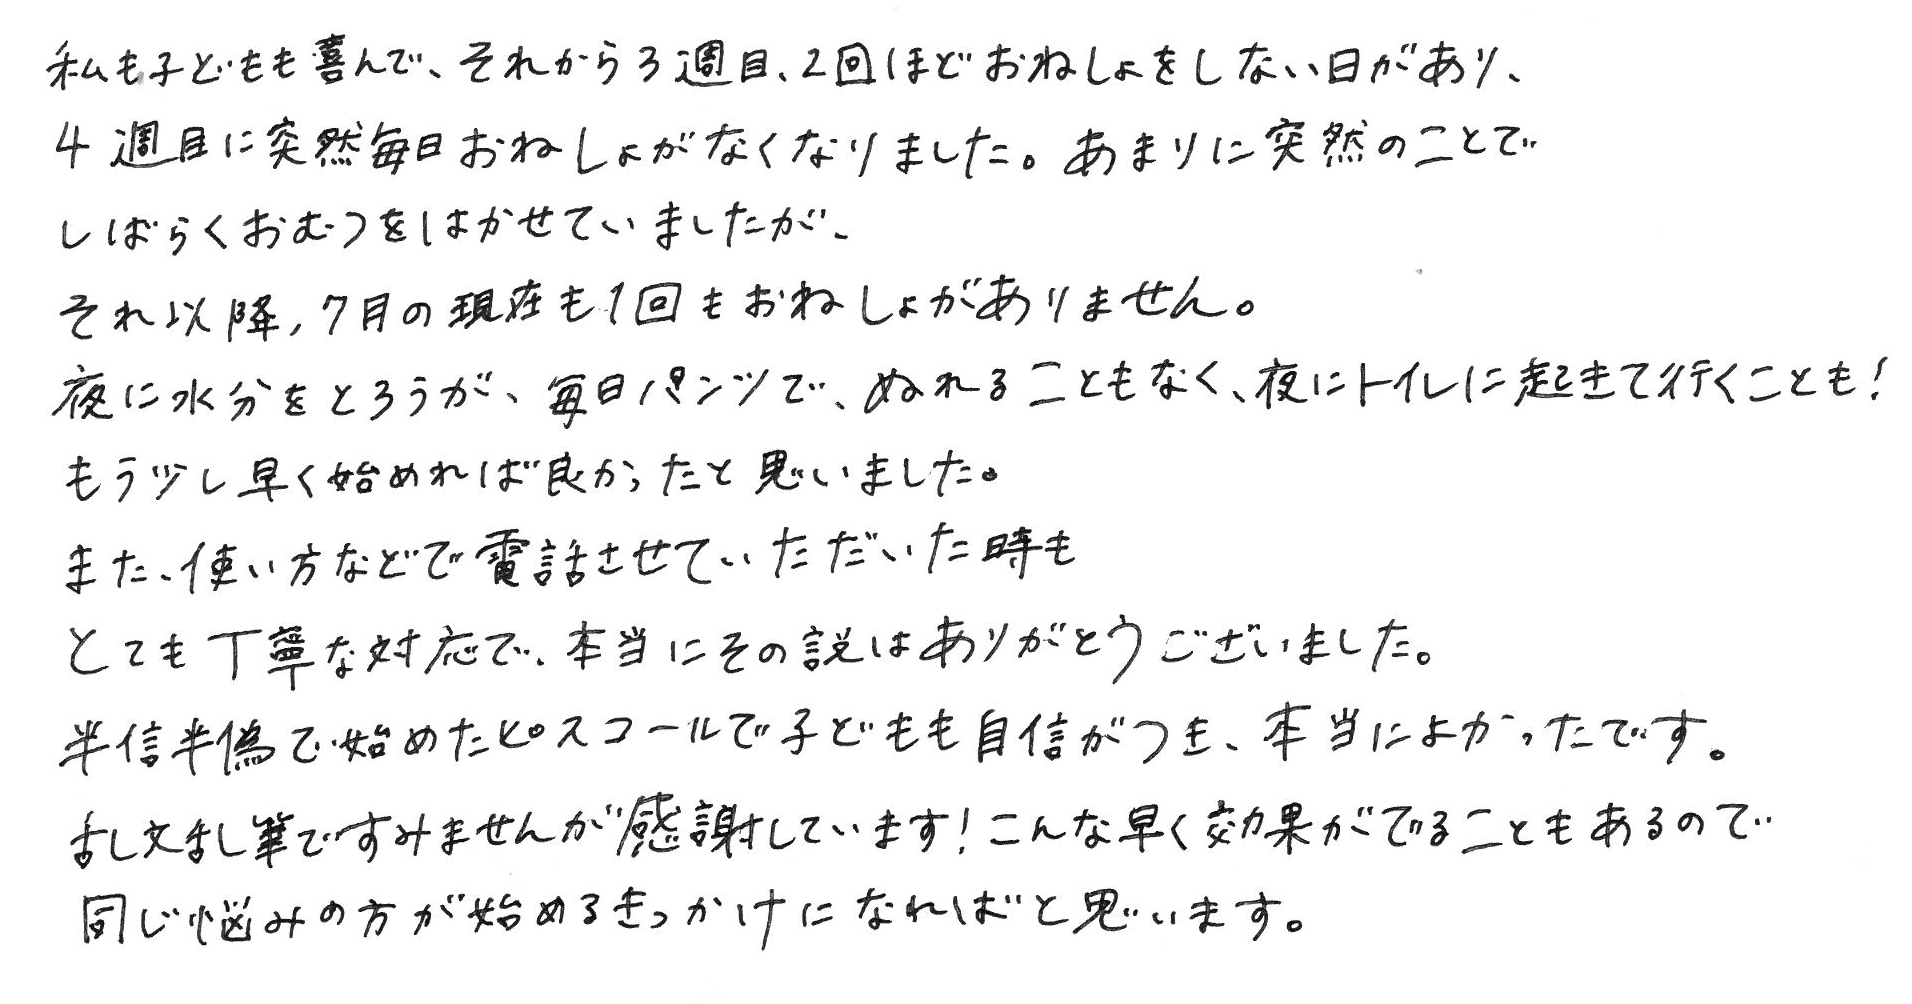 私も子どもも喜んで、それから3週目、2回ほどおねしょをしない日があり、
4週目に突然毎日おねしょがなくなりました。あまりに突然のことで
しばらくおむつをはかせていましたが、
それ以降、7月の現在も1回もおねしょがありません。
夜に水分をとろうが、毎日パンツで、ぬれることもなく、夜にトイレに起きて行くことも!
もう少し早く始めれば良かったと思いました。
また、使い方などで電話させていただいた時も
とても丁寧な対応で、本当にその説はありがとうございました。
半信半偽で始めたピスコールで子どもも自信がつき、本当によかったです。
乱文乱筆ですみませんが感謝しています!こんな早く効果がでることもあるので
同じ悩みの方が始めるきっかけになればと思います。